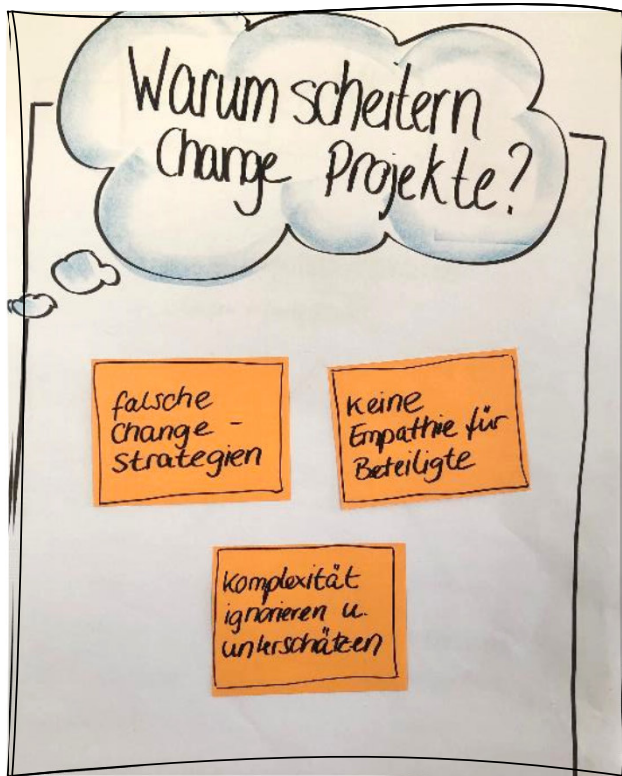 Warum scheitern
Change Projekte?
falsche
Change-
strategien
Keine
Empathie für
Beteiligte
Komplexität
ignorieren u.
unterschätzen